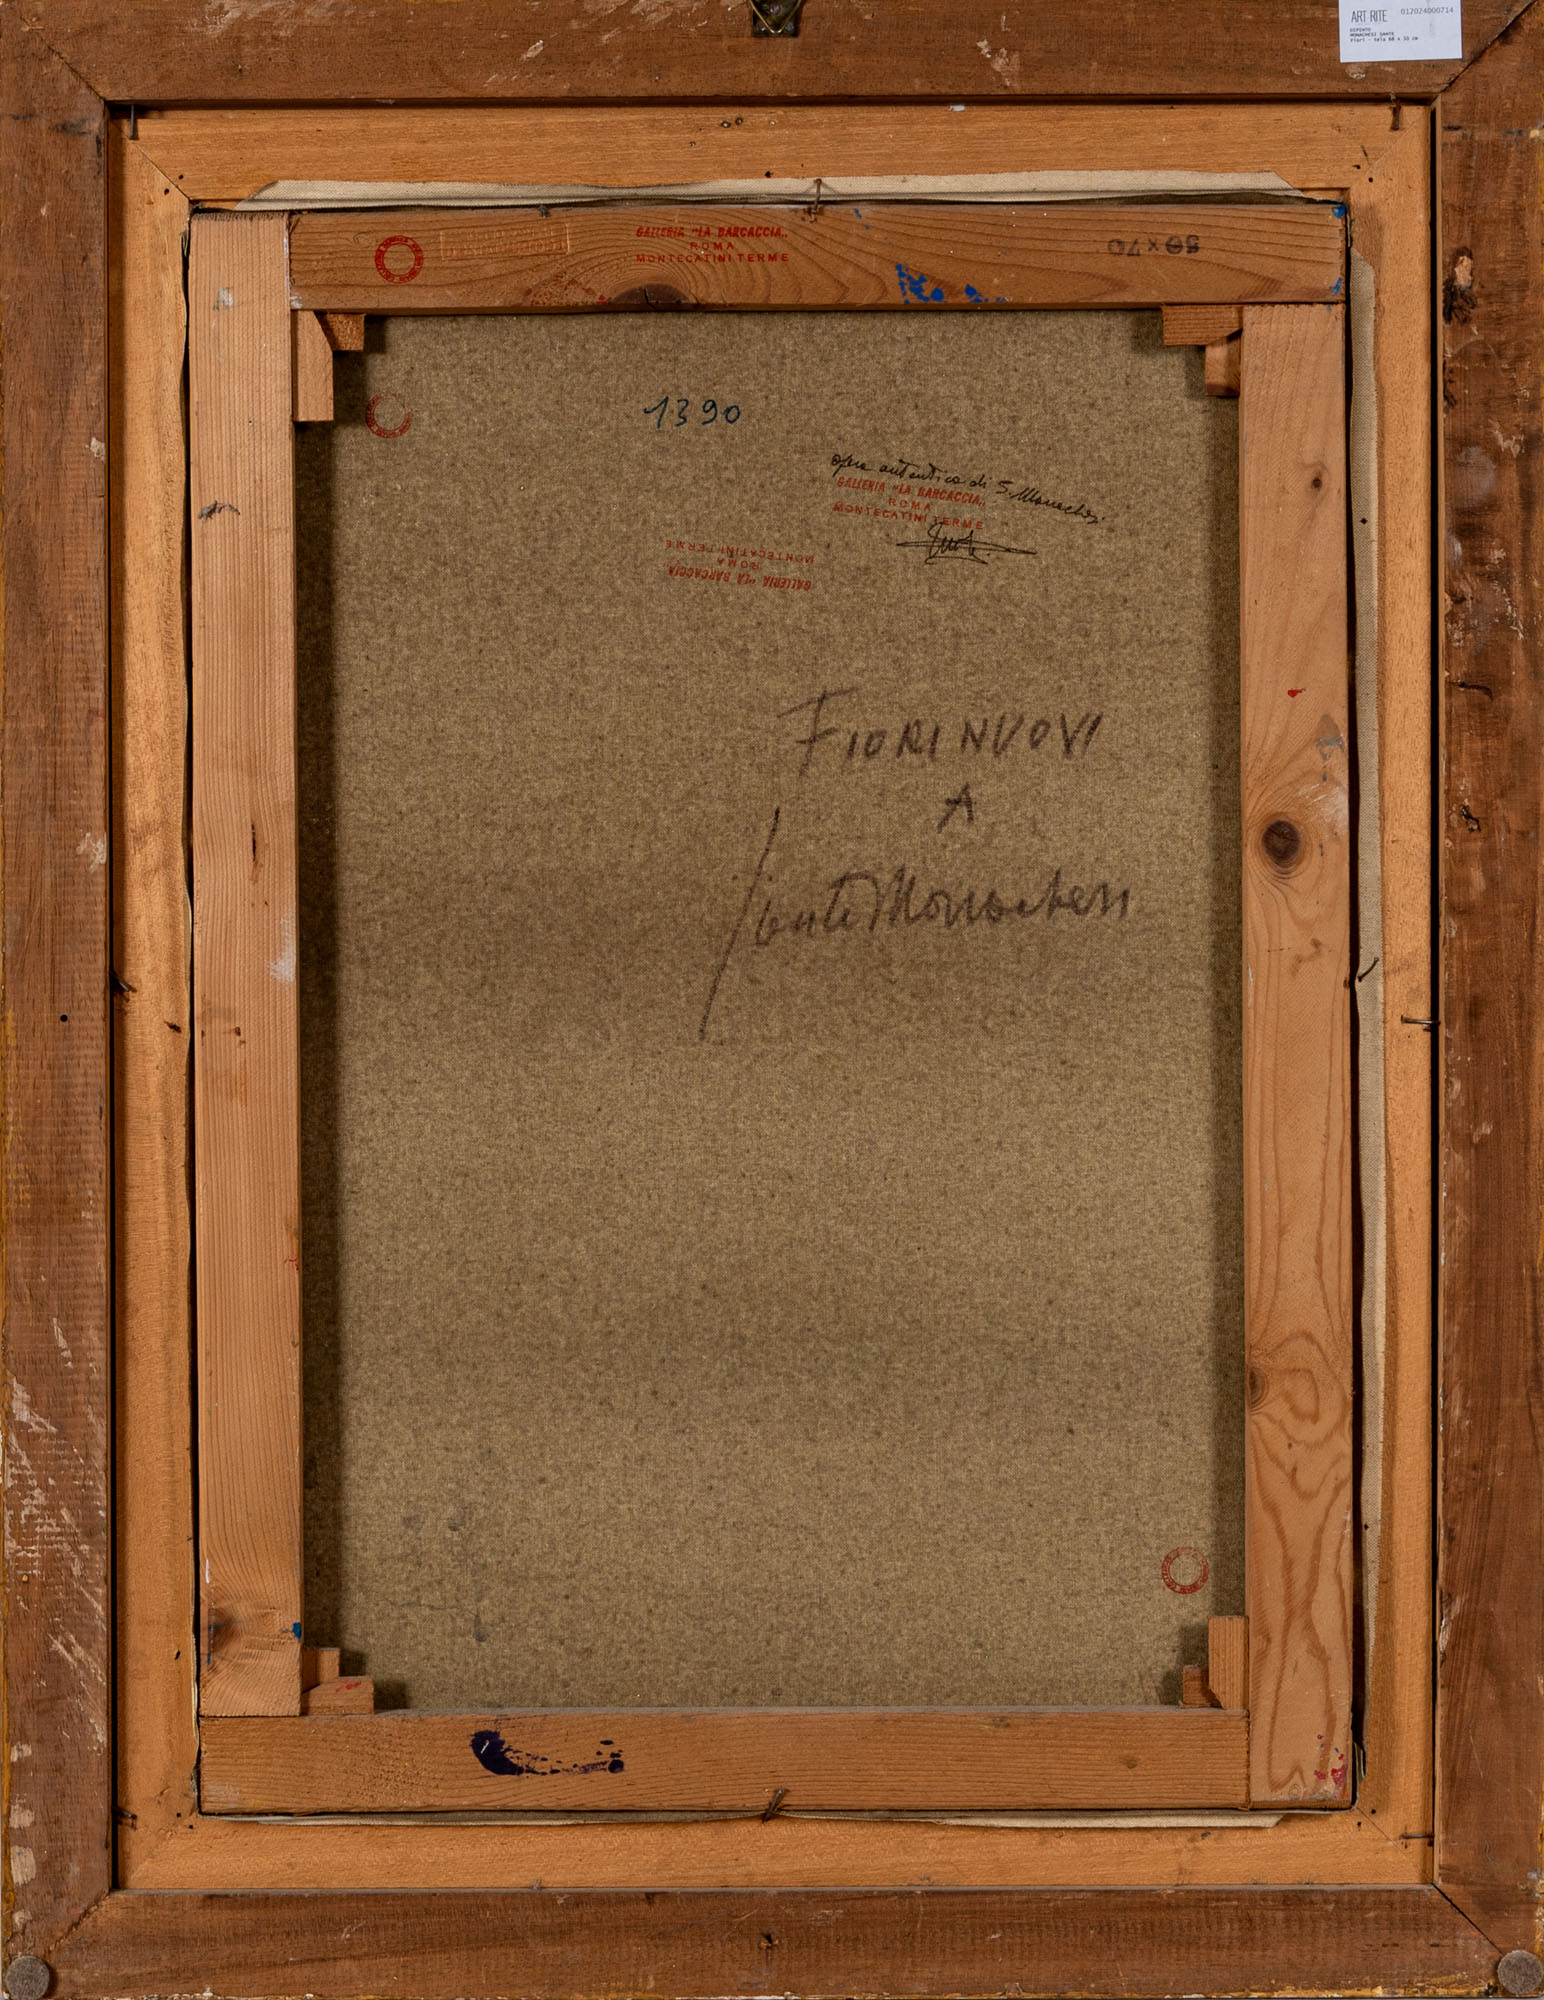 ART RITE 012024000714
DIPINTO
MONACHESI SANTE
Fiori - tela 68 x 50 cm
GALLERIA "LA BARCACCIA„
ROMA
MONTECATINI TERME
50×70
1390
opera autentica di S. Monachesi
GALLERIA "LA BARCACCIA„
ROMA
MONTECATINI TERME
GALLERIA "LA BARCACCIA
ROMA
MONTECATINI TERME
FIORI NUOVI
A
Sante Monachesi